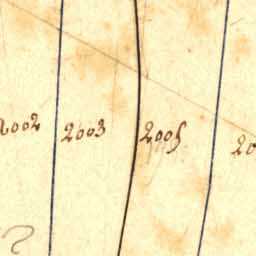 2002 2003 2005